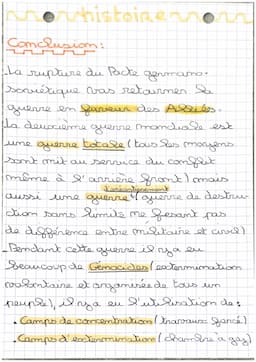 histoire
Conclusion :
La rupture du Pacte germano-
soviétique vas retourner la
guerre en faveur des Alliés.
La deuxième guerre mondiale est
une guerre totale (tous les moyens
sont mit au service du conflit
même à l'arrière front) mais
d'anéantissement
aussi une guerre (guerre de destru-
ction sans limite ne fesant pas
de différence entre militaire et civil)
Pendant cette guerre il n'y a eu
beaucoup de Génocides (extermination
volontaire et organisée de tous un
peuple), il n'y a eu l'utilisation de :
• Camps de concentration (travaux forcé)
• Camps d'extermination (chambre a gaz)